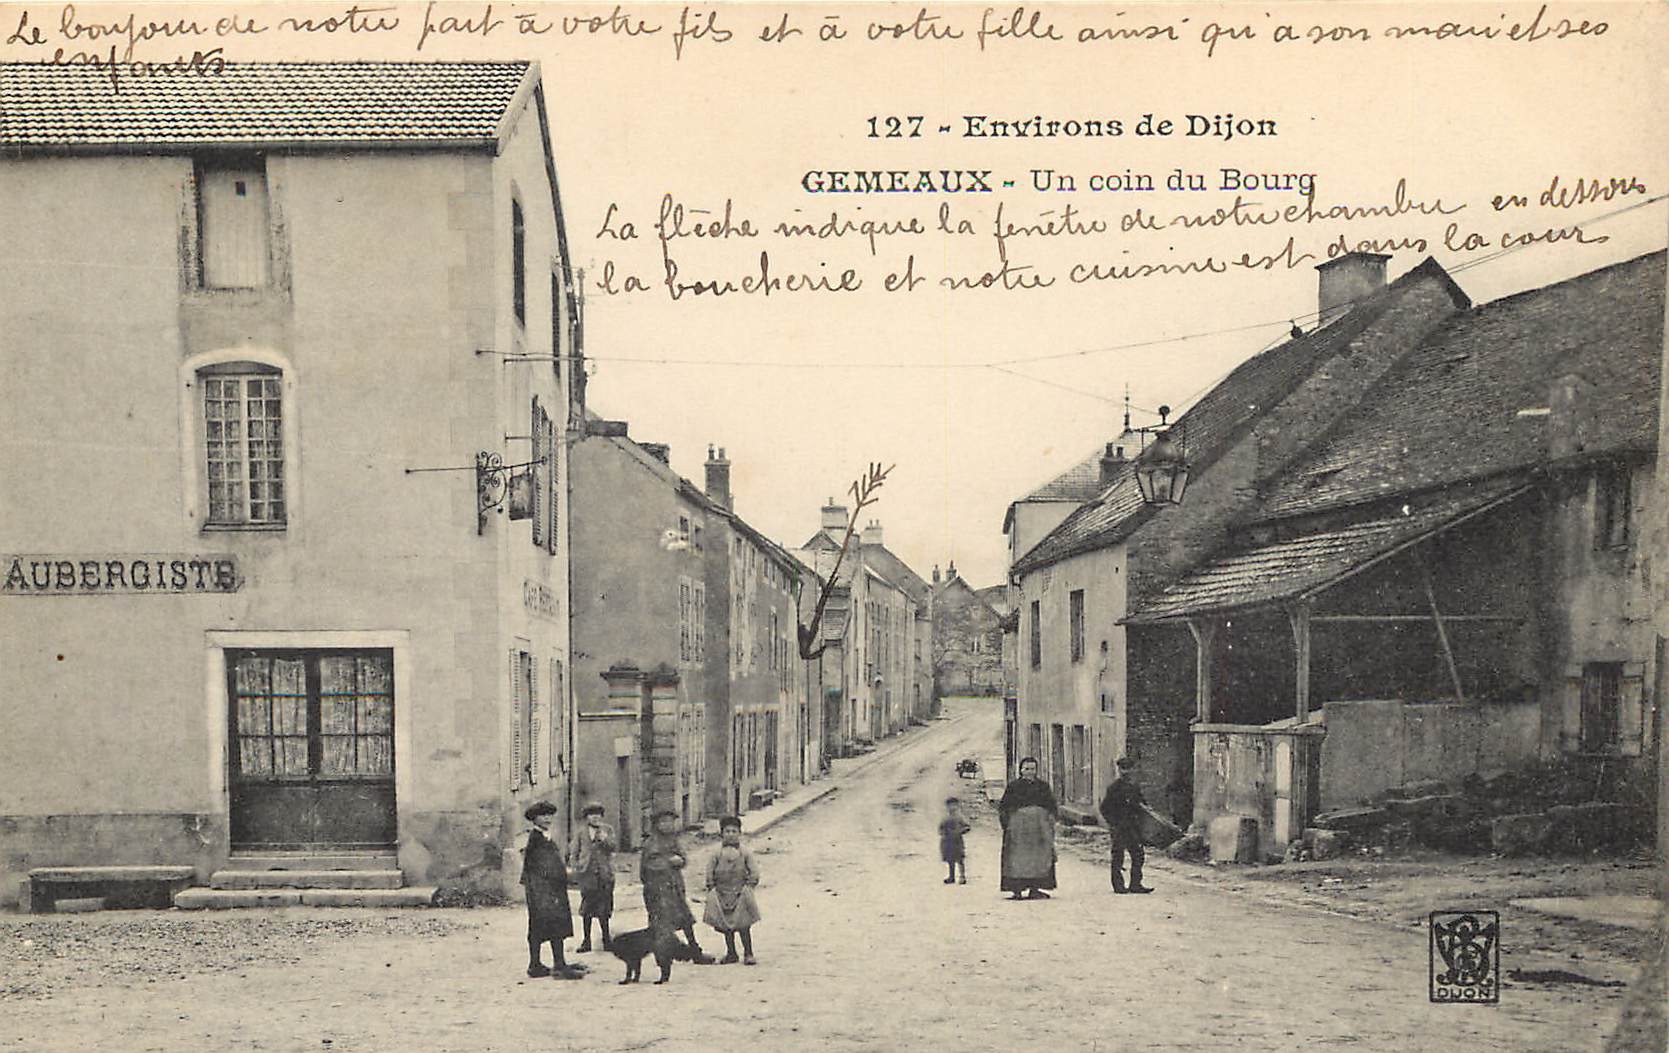 Le bonjour de notre part à votre fils et à votre fille ainsi qu'a son mari et ses
enfants
127 - Environs de Dijon
GEMEAUX - Un coin du Bourg
La flêche indique la fenêtre de notre chambre en dessous
la boucherie et notre cuisine est dans la cour
AUBERGISTE
CAFE RESTAURANT
DIJON